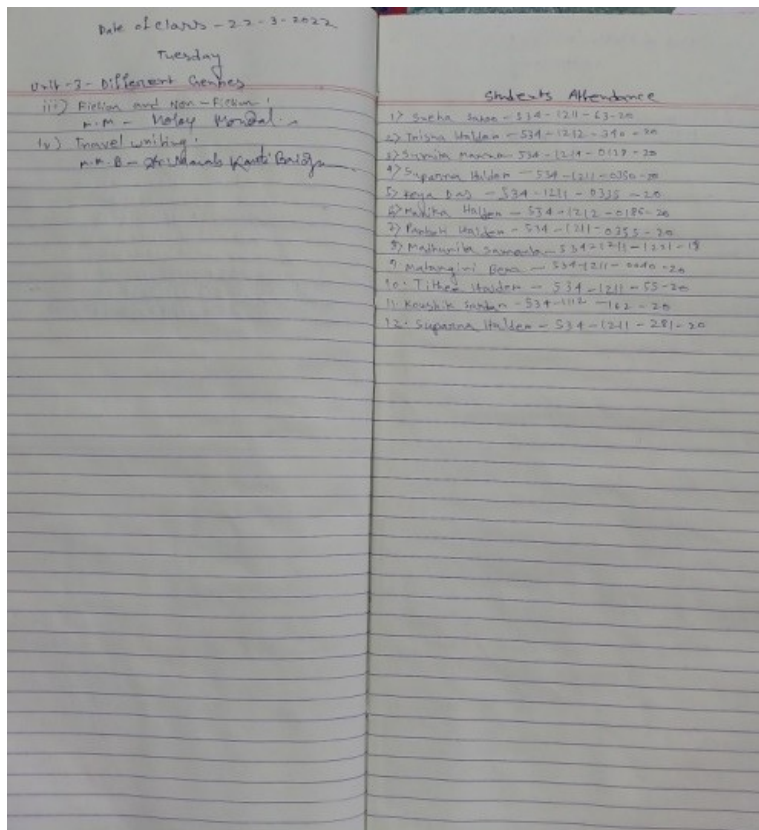 Date of class - 22-3-2022
Tuesday
Unit-3- Different Genres
iii) Fiction and Non-Fiction:
M.M - Moloy Mondal.
iv) Travel writing:
Students Attendance
1) Sneha - 534-1211-63-20
2) Trisha Halder - 534-1212-340-20
3) 534-1214-0128-20
4) Suparna Halder - 534-1211-0350-20
5) Keya Das - 534-1211-0335-20
6) Mallika Halder - 534-1212-0185-20
7) Halder - 534-1211-0355-20
8) Madhumita Samanta - 534-1211-1221-18
9. Matangini Bera - 534-1211-0040-20
10. Halder - 534-1211-55-20
11. Koushik - 534-1112-162-20
12. Suparna Halder - 534-1211-281-20